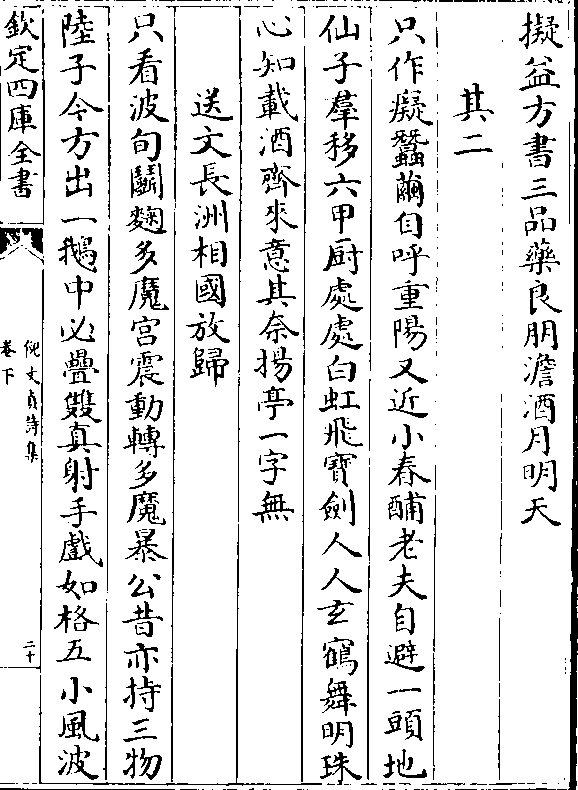 擬益方書三品藥良朋澹酒月明天
其二
只作癡蠶繭自呼重陽又近小春酺老夫自避一頭地
仙子羣移六甲厨處處白虹飛寶劍人人玄鶴舞明珠
心知載酒齊來意其奈揚亭一字無
送文長洲相國放歸
只看波旬鬭麴多魔宮震動轉多魔暴公昔亦持三物
陸子今方出一鵝中必疊雙真射手戲如格五小風波
欽定四庫全書
倪文貞詩集
卷下
二十